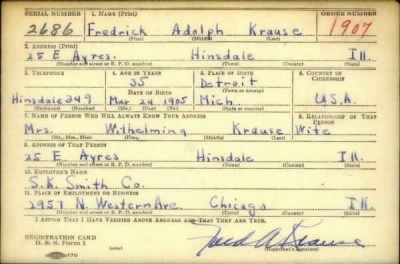 SERIAL NUMBER 1. NAME (Print) ORDER NUMBER
2686 Fredrick Adolph Krause 1907
2. ADDRESS (Print)
25 E. Ayres. Hinsdale Ill.
(Number and street or R. F. D. number) (Town) (County) (State)
3. TELEPHONE 4. AGE IN YEARS 5. PLACE OF BIRTH 6. COUNTRY OF CITIZENSHIP
35 Detroit
DATE OF BIRTH (Town or county)
Hinsdale 249 Mar 24 1905 Mich U.S.A.
(Exchange) (Number) (Mo.) (Day) (Yr.) (State or country)
7. NAME OF PERSON WHO WILL ALWAYS KNOW YOUR ADDRESS 8. RELATIONSHIP OF THAT PERSON
Mrs. Wilhelmina Krause Wife
(Mr., Mrs., Miss) (First) (Middle) (Last)
9. ADDRESS OF THAT PERSON
25 E. Ayres Hinsdale Ill.
(Number and street or R. F. D. number) (Town) (County) (State)
10. EMPLOYER'S NAME
S.K. Smith Co.
11. PLACE OF EMPLOYMENT OR BUSINESS
2957 N. Western Ave. Chicago Ill.
(Number and street or R. F. D. number) (Town) (County) (State)
I AFFIRM THAT I HAVE VERIFIED ABOVE ANSWERS AND THAT THEY ARE TRUE.
REGISTRATION CARD
D. S. S. Form 1 Fred A Krause
(Registrant's signature)